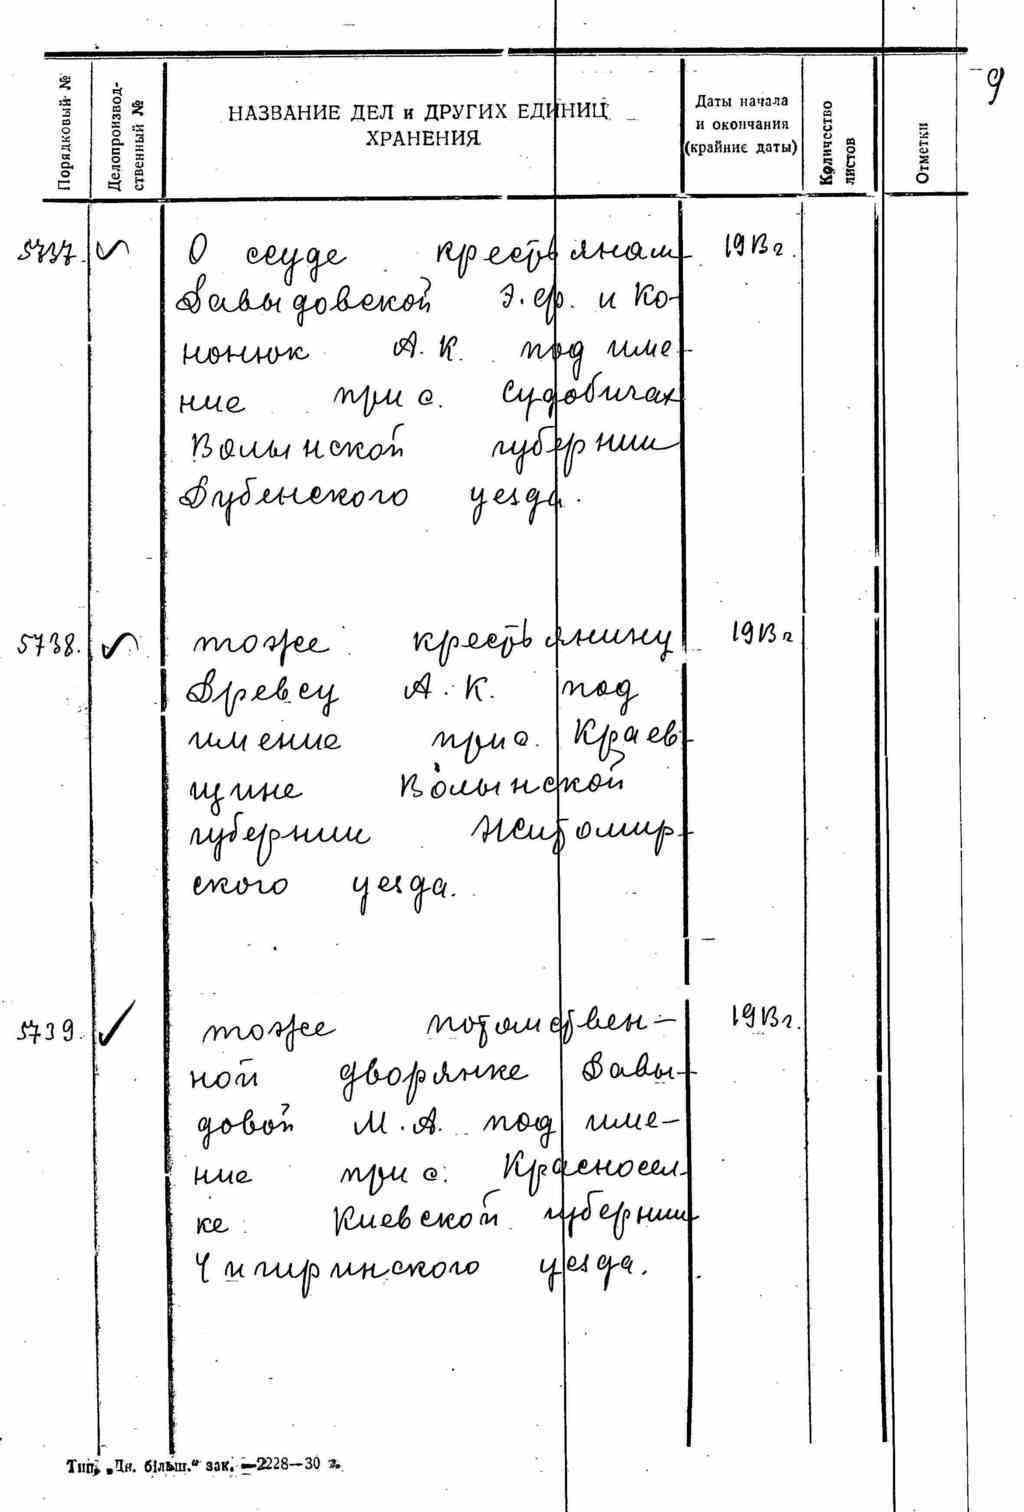 9
Порядковый №
Делопроизвод-
ственный №
НАЗВАНИЕ ДЕЛ и ДРУГИХ ЕДИНИЦ
ХРАНЕНИЯ
Даты начала
и окончания
(крайние даты)
Количество
листов
Отметки
5737. О ссуде крестьянам 1913 г.
Давыдовской Э. ср. и Ко-
нонюк А. К. под име-
ние при с. Судобичах
Волынской губернии
Дубенского уезда.
5738. тоже крестьянину 1913 г
Древсу А. К. под
имение при с. Краев
щине Волынской
губернии Житомир-
ского уезда.
5739. тоже потомствен- 1913 г.
ной дворянке Давы-
довой М. А. под име-
ние при с. Красносел-
ке Киевской губернии
Чигиринского уезда.
Тип. „Дн. більш.“ зак. —2228—30 г.